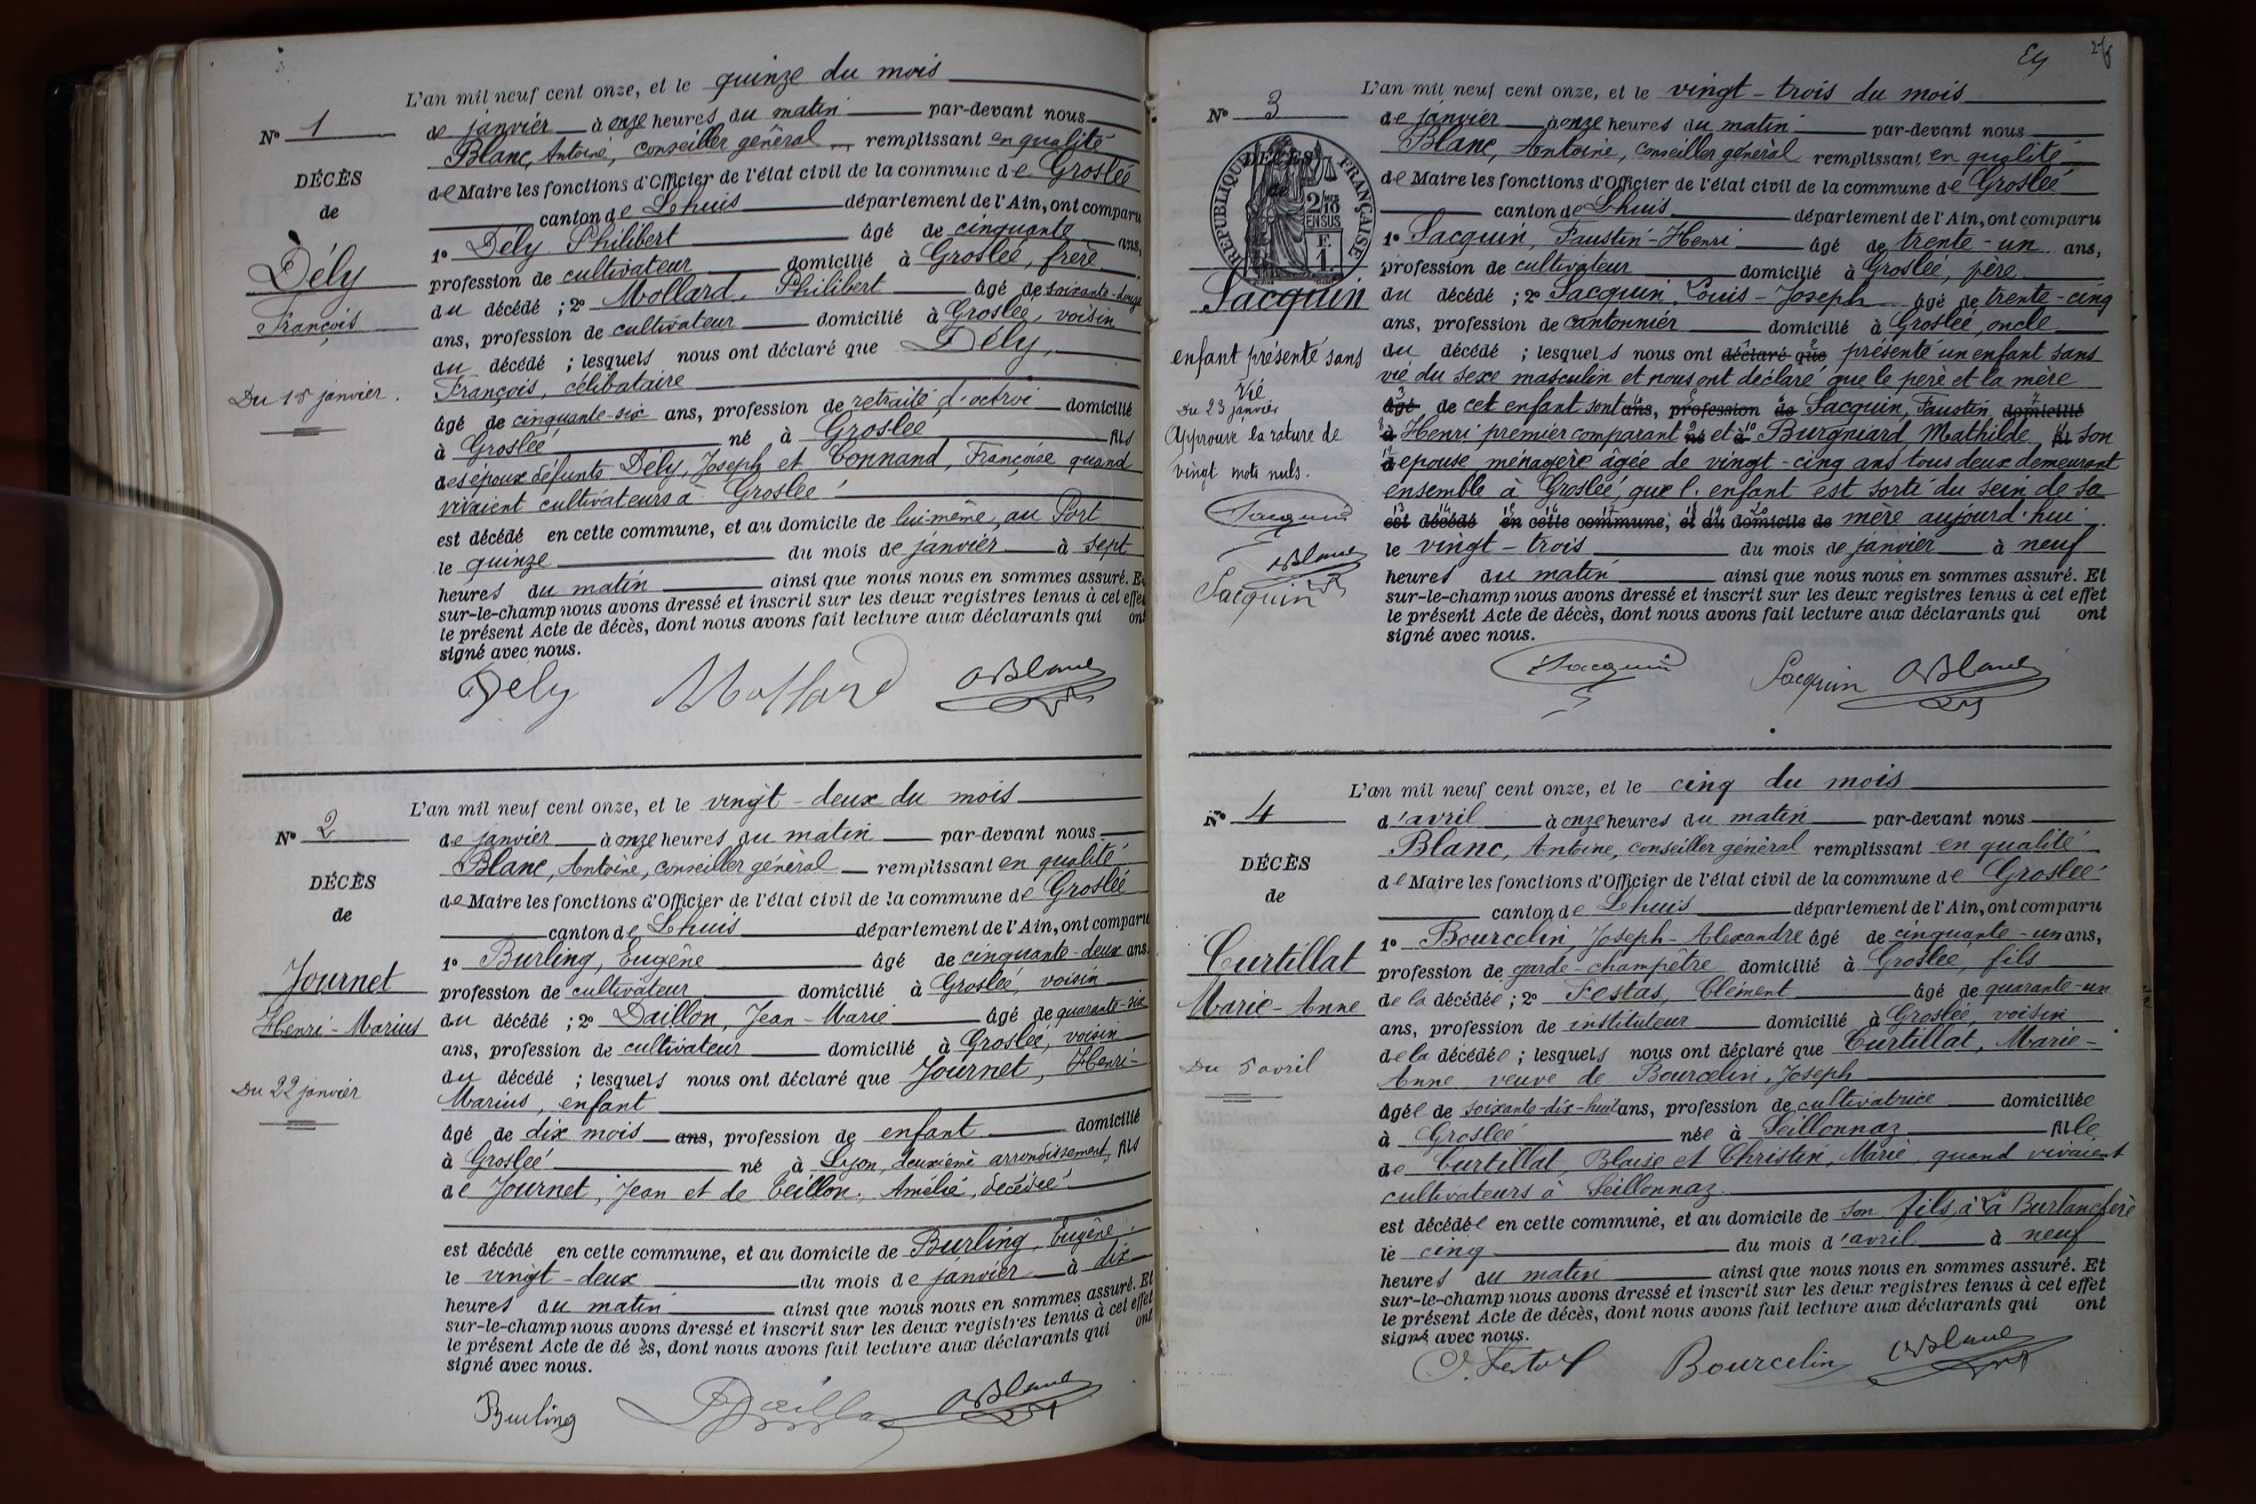 L'an mil neuf cent onze, et le quinze du mois
N° 1
de janvier à onze heures du matin par-devant nous
Blanc, Antoine, conseiller général remplissant en qualité
DÉCÈS
de Maire les fonctions d'Officier de l'état civil de la commune de Groslée
de
canton de Lhuis département de l'Ain, ont comparu
1° Dély Philibert âgé de cinquante ans,
Dély
profession de cultivateur domicilié à Groslée, frère
François
du décédé ; 2° Mollard, Philibert âgé de soixante-douze
ans, profession de cultivateur domicilié à Groslée, voisin
du décédé ; lesquels nous ont déclaré que Dély,
Du 15 janvier.
François, célibataire
âgé de cinquante-six ans, profession de retraité d'octroi domicilié
à Groslée né à Groslée fils
des époux défunts Dély, Joseph et Connand, Françoise quand
vivaient cultivateurs à Groslée
est décédé en cette commune, et au domicile de lui-même, au Port
le quinze du mois de janvier à sept
heures du matin ainsi que nous nous en sommes assuré. Et
sur-le-champ nous avons dressé et inscrit sur les deux registres tenus à cet effet
le présent Acte de décès, dont nous avons fait lecture aux déclarants qui ont
signé avec nous.
Dely Mollard A Blanc
L'an mil neuf cent onze, et le vingt-deux du mois
N° 2
de janvier à onze heures du matin par-devant nous
Blanc, Antoine, conseiller général remplissant en qualité
DÉCÈS
de Maire les fonctions d'Officier de l'état civil de la commune de Groslée
de
canton de Lhuis département de l'Ain, ont comparu
1° Burling, Eugène âgé de cinquante-deux ans
Journet
profession de cultivateur domicilié à Groslée, voisin
Henri-Marius
du décédé ; 2° Daillon, Jean-Marie âgé de quarante-six
ans, profession de cultivateur domicilié à Groslée, voisin
du décédé ; lesquels nous ont déclaré que Journet, Henri-
Du 22 janvier
Marius, enfant
âgé de dix mois ans, profession de enfant domicilié
à Groslée né à Lyon, deuxième arrondissement, fils
de Journet, Jean et de Teillon, Amélie, décédée
est décédé en cette commune, et au domicile de Burling, Eugène
le vingt-deux du mois de janvier à dix
heures du matin ainsi que nous nous en sommes assuré. Et
sur-le-champ nous avons dressé et inscrit sur les deux registres tenus à cet effet
le présent Acte de dé ès, dont nous avons fait lecture aux déclarants qui ont
signé avec nous.
Burling Daillon A Blanc
L'an mil neuf cent onze, et le vingt-trois du mois
N° 3
de janvier à onze heures du matin par-devant nous
Blanc, Antoine, conseiller général remplissant en qualité
DÉCÈS
de
RÉPUBLIQUE FRANÇAISE
2/10 EN SUS
F. 1.
de Maire les fonctions d'Officier de l'état civil de la commune de Groslée
canton de Lhuis département de l'Ain, ont comparu
1° Jacquin, Faustin-Henri âgé de trente-un ans,
profession de cultivateur domicilié à Groslée, père
Jacquin
du décédé ; 2° Jacquin, Louis-Joseph âgé de trente-cinq
ans, profession de cantonnier domicilié à Groslée, oncle
enfant présenté sans
vie
du décédé ; lesquels nous ont déclaré que présenté un enfant sans
vie du sexe masculin et nous ont déclaré que le père et la mère
Du 23 janvier
âgé de cet enfant sont ans, profession de Jacquin, Faustin domicilié
Approuvé la rature de
à Henri premier comparant né et à Burgniard, Mathilde fils son
vingt mots nuls.
d épouse ménagère âgée de vingt-cinq ans tous deux demeurant
ensemble à Groslée, que l'enfant est sorti du sein de sa
Jacquin
est décédé en cette commune, et du domicile de mère aujourd'hui
A Blanc
le vingt-trois du mois de janvier à neuf
Jacquin
heures du matin ainsi que nous nous en sommes assuré. Et
sur-le-champ nous avons dressé et inscrit sur les deux registres tenus à cet effet
le présent Acte de décès, dont nous avons fait lecture aux déclarants qui ont
signé avec nous.
Jacquin Jacquin A Blanc
L'an mil neuf cent onze, et le cinq du mois
N° 4
d'avril à onze heures du matin par-devant nous
Blanc, Antoine, conseiller général remplissant en qualité
DÉCÈS
de Maire les fonctions d'Officier de l'état civil de la commune de Groslée
de
canton de Lhuis département de l'Ain, ont comparu
1° Bourcelin, Joseph-Alexandre âgé de cinquante-un ans,
Curtillat
profession de garde-champêtre domicilié à Groslée, fils
Marie-Anne
de la décédée ; 2° Festas, Clément âgé de quarante-un
ans, profession de instituteur domicilié à Groslée, voisin
de la décédée ; lesquels nous ont déclaré que Curtillat, Marie-
Du 5 avril
Anne veuve de Bourcelin, Joseph
âgée de soixante-dix-huit ans, profession de cultivatrice domiciliée
à Groslée née à Seillonnaz fille
de Curtillat, Blaise et Christin, Marie, quand vivaient
cultivateurs à Seillonnaz.
est décédée en cette commune, et au domicile de son fils, à La Burlanchère
le cinq du mois d'avril à neuf
heures du matin ainsi que nous nous en sommes assuré. Et
sur-le-champ nous avons dressé et inscrit sur les deux registres tenus à cet effet
le présent Acte de décès, dont nous avons fait lecture aux déclarants qui ont
signé avec nous.
Bourcelin A Blanc